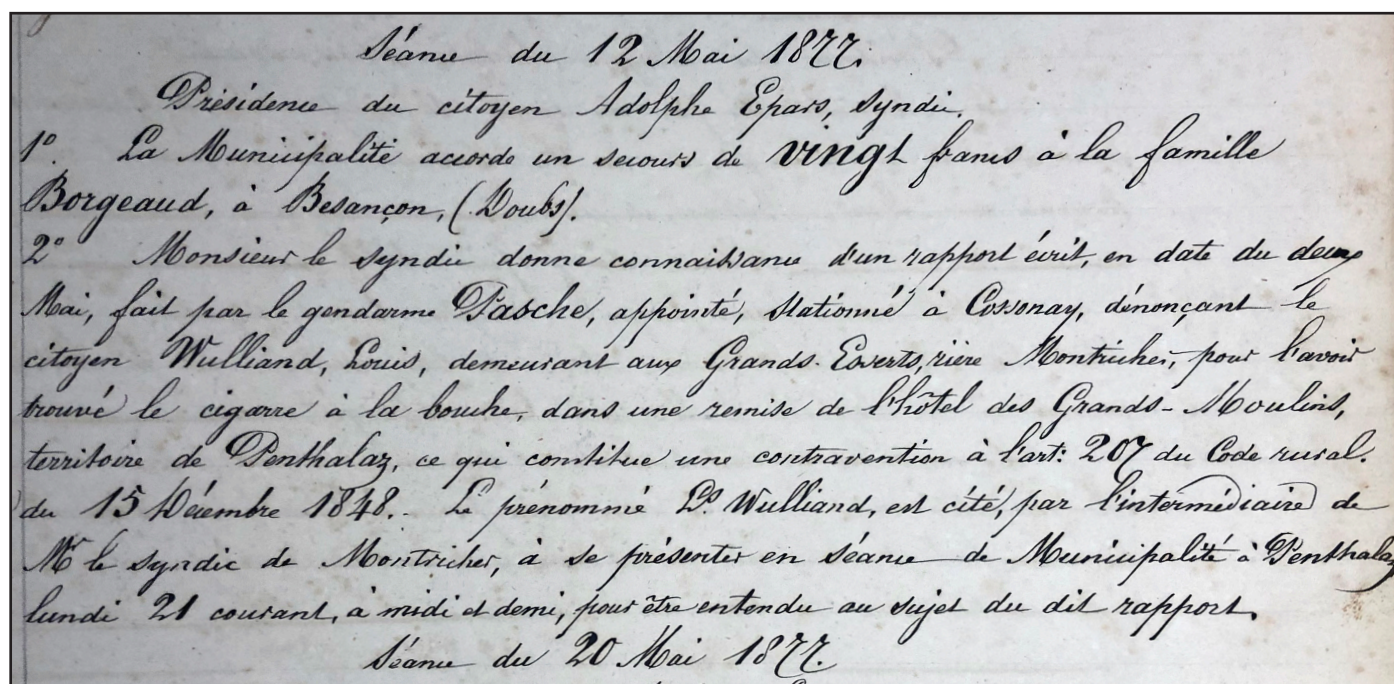 Séance du 12 Mai 1877.
Présidence du citoyen Adolphe Epars, syndic.
1º. La Municipalité accorde un secours de vingt francs à la famille
Borgeaud, à Besançon, (Doubs).
2º Monsieur le syndic donne connaissance d'un rapport écrit, en date du deux
Mai, fait par le gendarme Pasche, appointé, stationné à Cossonay, dénonçant le
citoyen Wulliand, Louis, demeurant aux Grands-Esserts, rière Montricher, pour l'avoir
trouvé le cigarre à la bouche, dans une remise de l'hôtel des Grands-Moulins,
territoire de Penthalaz, ce qui constitue une contravention à l'art: 207 du Code rural.
du 15 Décembre 1848.- Le prénommé Ls. Wulliand, est cité, par l'intermédiaire de
Mr le syndic de Montricher, à se présenter en séance de Municipalité à Penthalaz
lundi 21 courant, à midi et demi, pour être entendu au sujet du dit rapport.
Séance du 20 Mai 1877.